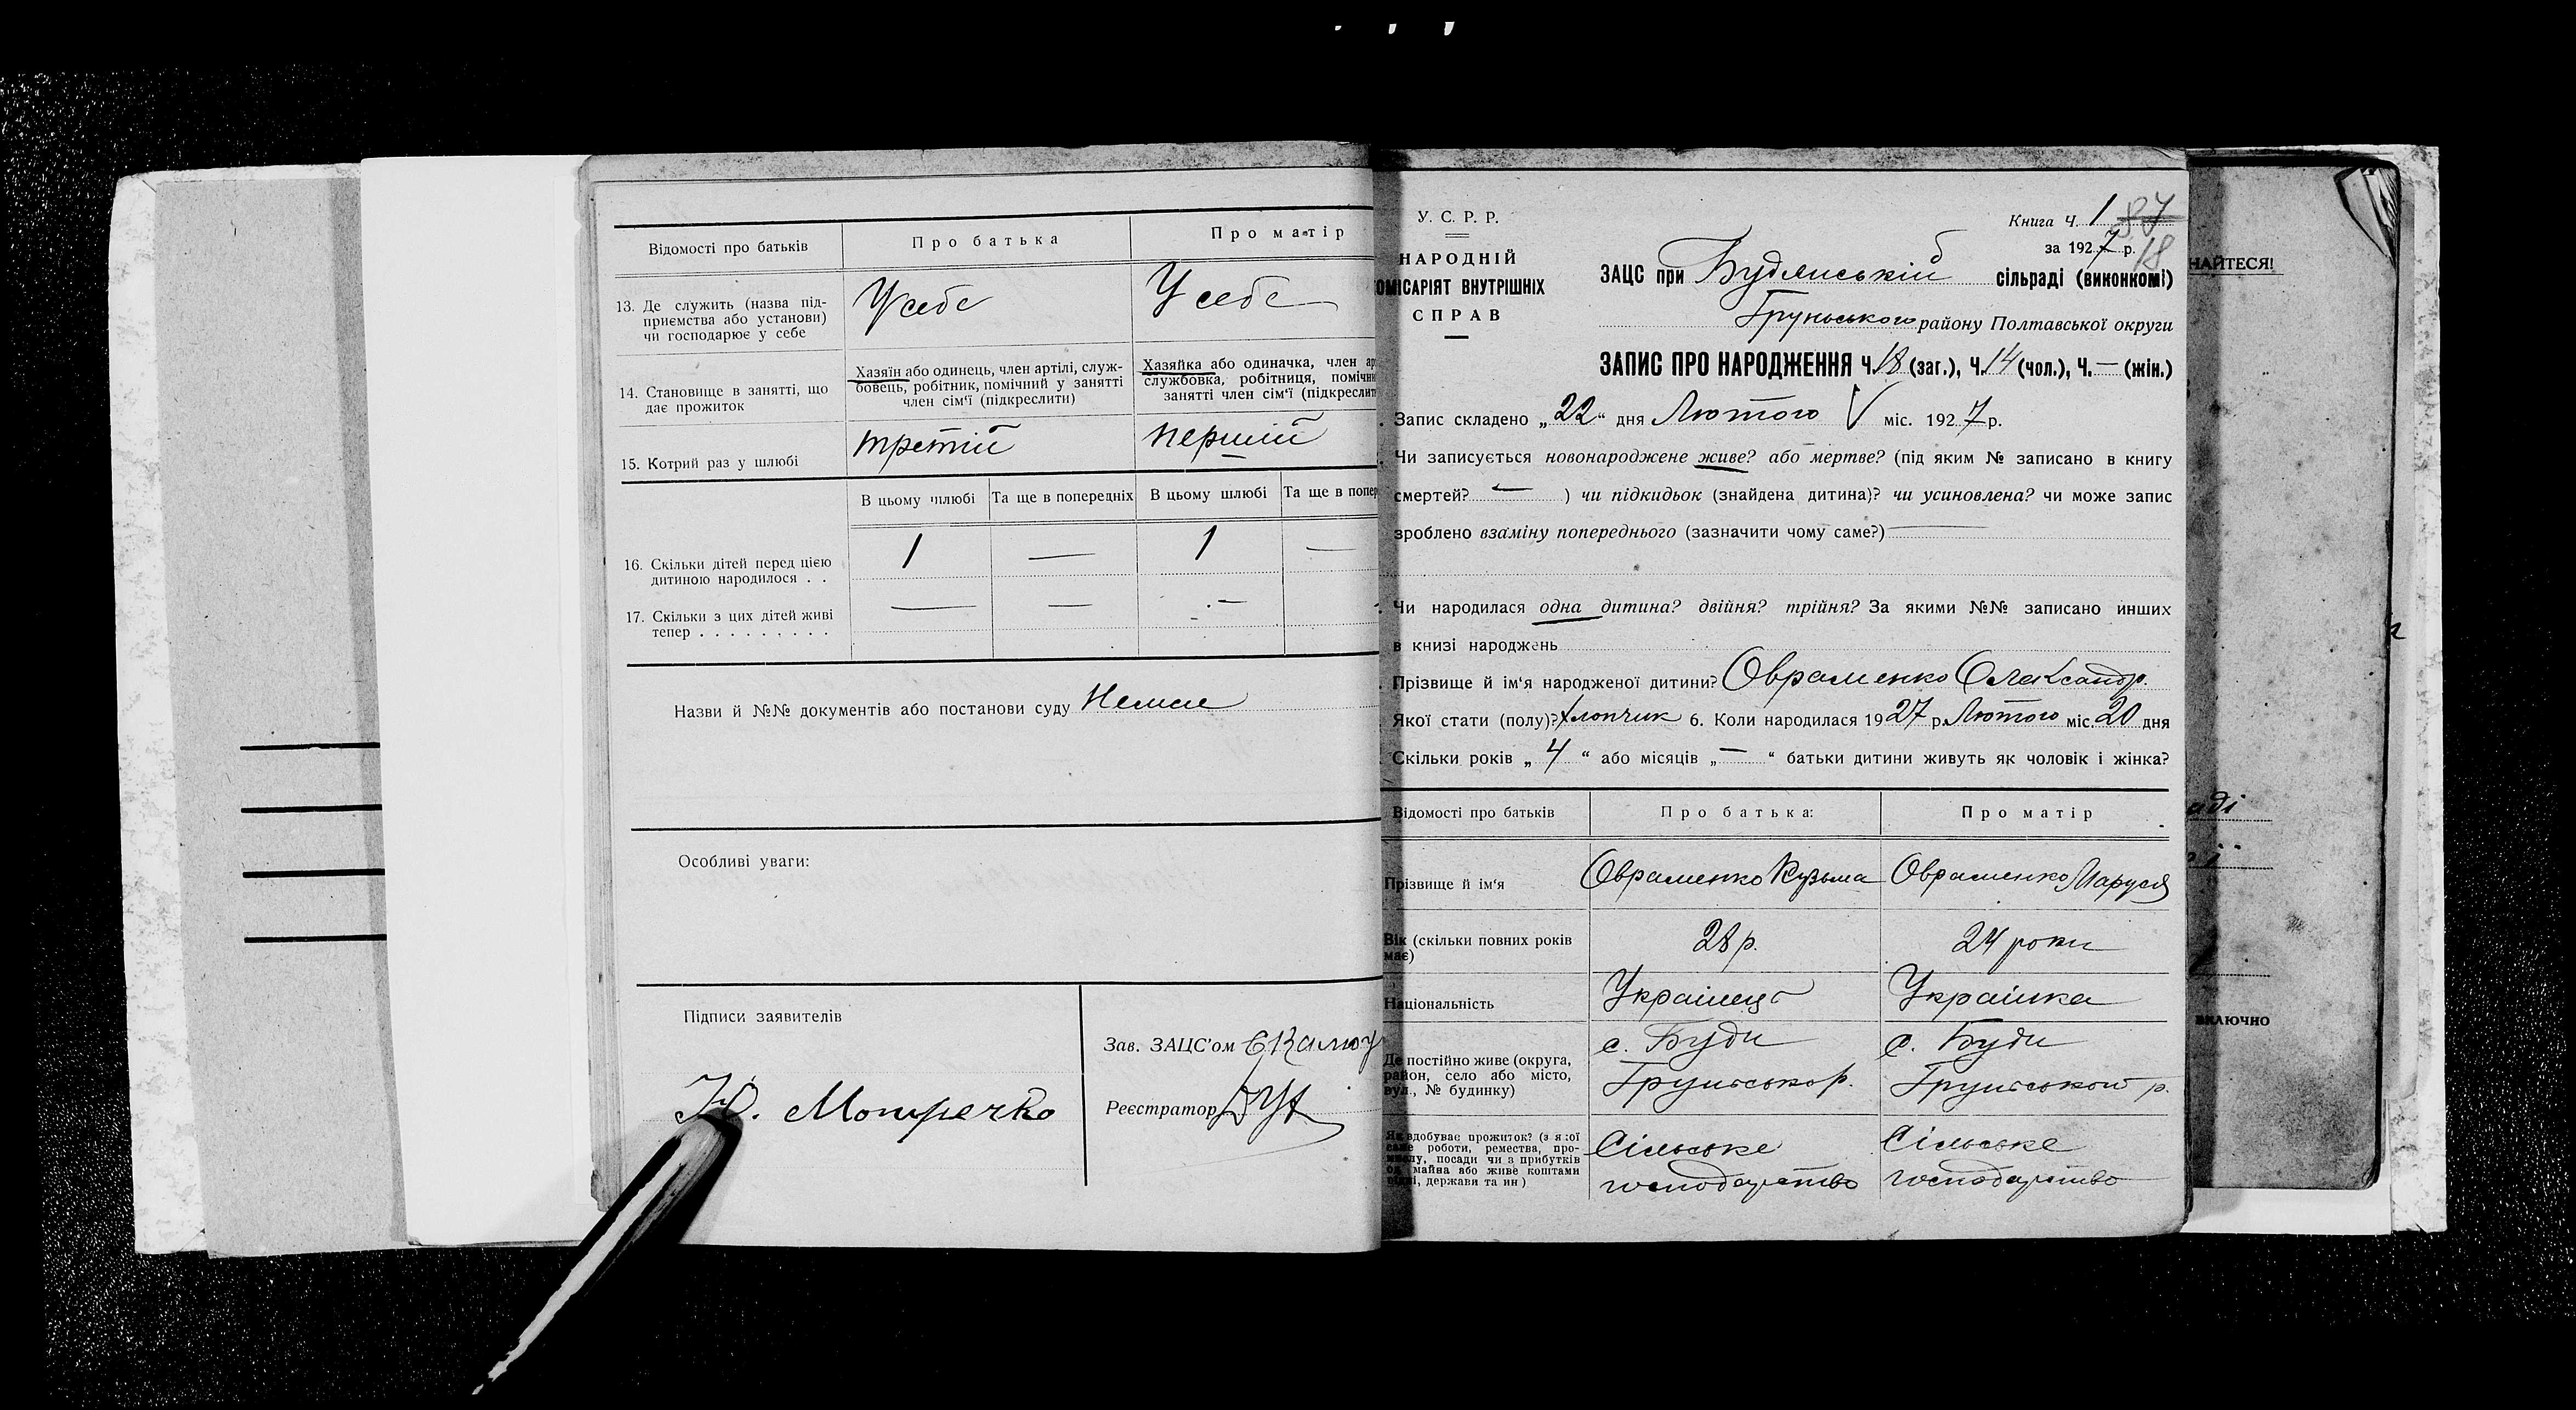 Відомості про батьків
Про батька
Про матір
13. Де служить (назва під-
приємства або установи)
чи господарює у себе
У себе
У себе
14. Становище в занятті, що
дає прожиток
Хазяїн або одинець, член артілі, служ-
бовець, робітник, помічний у занятті
член сім'ї (підкреслити)
Хазяйка або одиначка, член ар
службовка, робітниця, помічн
занятті член сім'ї (підкреслит
15. Котрий раз у шлюбі
третій
першій
В цьому шлюбі
Та ще в попередніх
В цьому шлюбі
Та ще в попер
16. Скільки дітей перед цією
дитиною народилося . .
1 — 1 —
17. Скільки з цих дітей живі
тепер . . . . . . . . .
— — —
Назви й №№ документів або постанови суду Немає
Особливі уваги:
Підписи заявителів
Зав. ЗАЦС'ом
Реєстратор
У. С. Р. Р.
НАРОДНІЙ
ОМІСАРІЯТ ВНУТРІШНІХ
СПРАВ
Книга Ч. 1 87
за 1927 р. 18
ЗАЦС при Будянській сільраді (виконкомі)
Груньського району Полтавської округи
ЗАПИС ПРО НАРОДЖЕННЯ Ч. 18 (заг.), Ч. 14 (чол.), Ч. — (жін.)
Запис складено „22“ дня Лютого V міс. 1927 р.
Чи записується новонароджене живе? або мертве? (під яким № записано в книгу
смертей? — ) чи підкидьок (знайдена дитина)? чи усиновлена? чи може запис
зроблено взаміну попереднього (зазначити чому саме?) —
Чи народилася одна дитина? двійня? трійня? За якими №№ записано инших
в книзі народжень
Прізвище й ім'я народженої дитини? Овраменко Олександр.
Якої стати (полу)? Хлопчик 6. Коли народилася 1927 р. Лютого міс. 20 дня
Скільки років „4“ або місяців „—“ батьки дитини живуть як чоловік і жінка?
Відомості про батьків
Про батька:
Про матір
Прізвище й ім'я
Овраменко Кузьма
Овраменко Маруся
Вік (скільки повних років
має)
28 р.
24 роки
Національність
Українець
Українка
Де постійно живе (округа,
район, село або місто,
вул., № будинку)
с. Буди
Груньсько р.
с. Буди
Груньского р.
Як здобуває прожиток? (з якої
саме роботи, ремества, про-
мислу, посади чи з прибутків
од майна або живе коштами
рідні, держави та ин)
Сільське
господарство
Сільське
господарство
НАЙТЕСЯ!
аді
ії
ВКЛЮЧНО